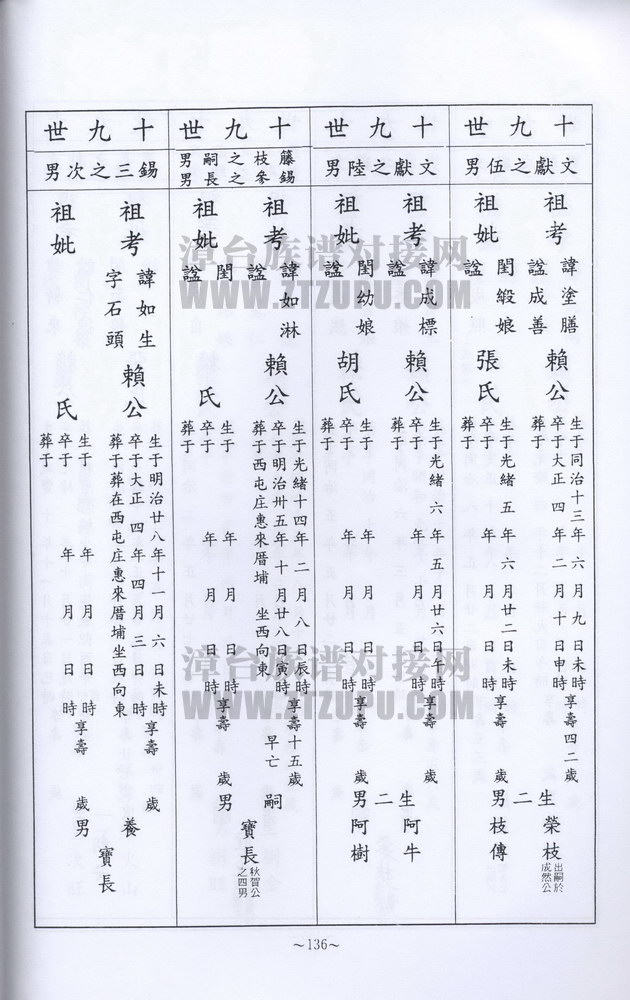 十九世
文獻之伍男
祖考
諱塗膳
諡成善
賴公
生于同治十三年六月九日未時享壽四二歲
卒于大正四年二月十日申時
葬于
祖妣
閨緞娘
諡
張氏
生于光緒五年六月廿二日未時享壽歲
卒于年月日時
葬于
生二男
榮枝出嗣於成然公
枝傳
十九世
文獻之陸男
祖考
諱成標
諡
賴公
生于光緒六年五月廿六日午時享壽歲
卒于年月日時
葬于
祖妣
閨幼娘
諡
胡氏
生于年月日時享壽歲
卒于年月日時
葬于
生二男
阿牛
阿樹
十九世
藤枝之嗣男
錫參之長男
祖考
諱如淋
諡
賴公
生于光緒十四年二月八日辰時享壽十五歲
卒于明治卅五年十月廿八日寅時早亡
葬于西屯庄惠來厝埔坐西向東
祖妣
閨
諡
氏
生于年月日時享壽歲
卒于年月日時
葬于
嗣男
寶長秋賀公之四男
十九世
錫三之次男
祖考
諱如生
字石頭
賴公
生于明治廿八年十一月六日未時享壽歲
卒于大正四年四月三日時
葬于葬在西屯庄惠來厝埔坐西向東
祖妣
氏
生于年月日時享壽歲
卒于年月日時
葬于
養男
寶長
~136~
漳台族谱对接网
WWW.ZTZUPU.COM
漳台族谱对接网
WWW.ZTZUPU.COM